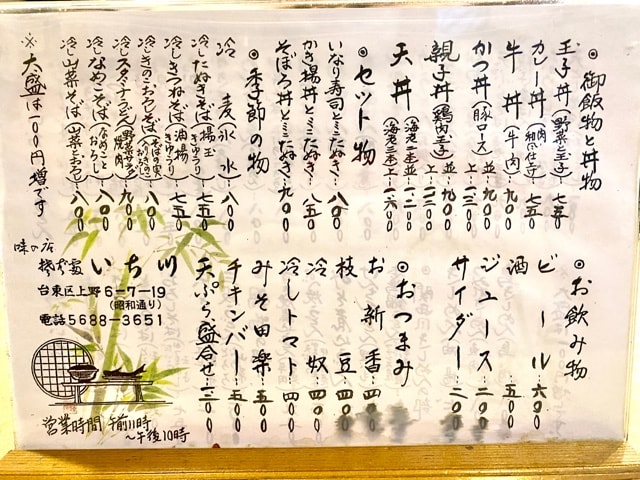 ◎御飯物と丼物
玉子丼(野菜と玉子)…七五〇
カレー丼(肉 和風仕立)…七五〇
牛丼(牛肉)…九〇〇
かつ丼(豚ロース)並…九〇〇
上…一二〇〇
親子丼(鶏肉玉子)並…九〇〇
上…一二〇〇
天丼(海老二本)並…一二〇〇
(海老三本)上…一六〇〇
◎セット物
いなり寿司とミニたぬき…八〇〇
かき揚丼とミニたぬき…八五〇
そぼろ丼とミニたぬき…九〇〇
◎季節の物
冷麦 氷水…八〇〇
冷したぬきそば(揚玉 きゅうり)…七五〇
冷しきつねそば(油揚 きゅうり)…七五〇
冷しきのこおろしそば…八〇〇
冷しスタミナうどん(野菜サラダ 焼肉)…九〇〇
冷しなめこそば(なめことおろし)…八〇〇
冷し山菜そば(山菜とおろし)…八〇〇
※大盛は一〇〇円増です
◎お飲み物
ビール…六〇〇
酒…五〇〇
ジュース…二〇〇
サイダー…二〇〇
◎おつまみ
お新香…四〇〇
枝豆…四〇〇
冷奴…四〇〇
冷しトマト…四〇〇
みそ田楽…五〇〇
チキンバー…五〇〇
天ぷら盛合せ…一三〇〇
味の店
そば処 いち川
台東区上野6-7-19
(昭和通り)
電話5688-3651
営業時間 午前11時
~午後10時